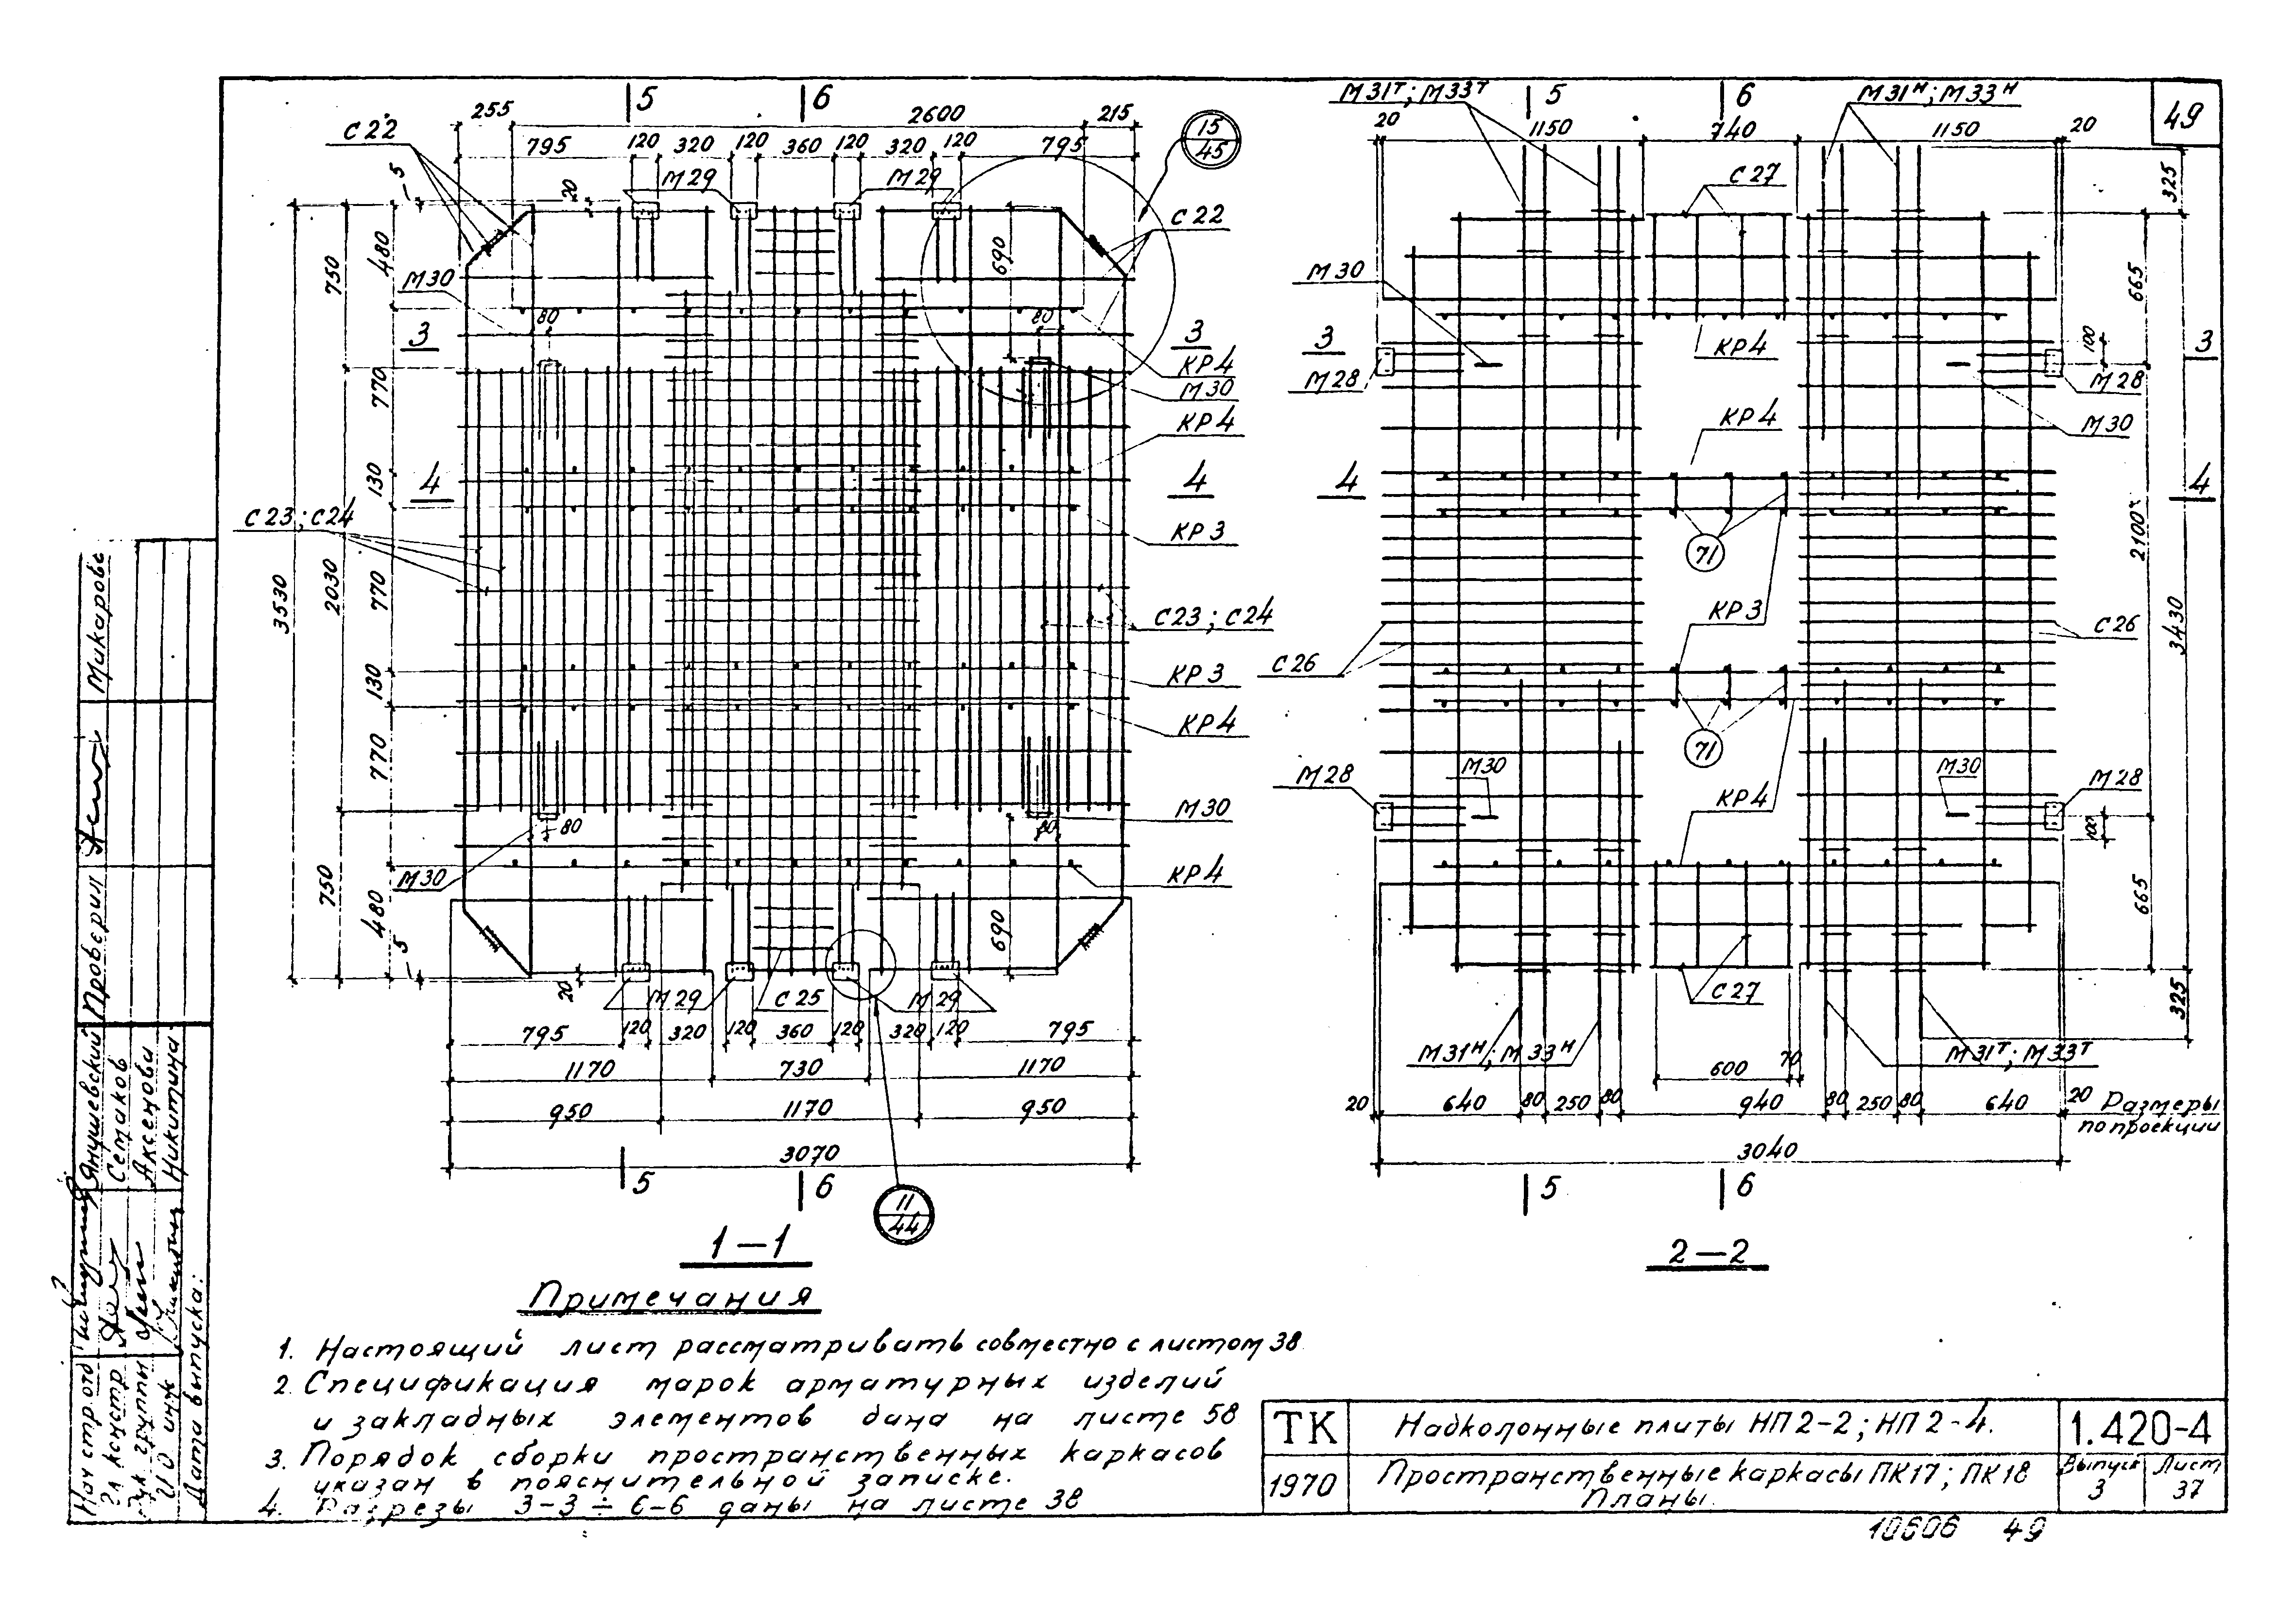 49
5
6
255
2600
215
15
45
С22
795
120
320
120
360
120
320
120
795
М29
М29
5
20
С22
480
750
690
М30
80
80
3
3
КР4
М30
770
КР4
130
4
4
С23; С24
КР3
3530
2030
770
С23; С24
КР3
130
КР4
770
М30
80
80
М30
КР4
750
480
690
5
20
М29
С25
М29
795
120
320
120
360
120
320
120
795
1170
730
1170
950
1170
950
3070
5
6
11
44
1—1
М31Т; М33Т
5
6
М31Н; М33Н
20
1150
740
1150
20
С27
325
М30
665
3
КР4
100
3
М28
М28
КР4
М30
4
4
71
2100*
КР3
3430
С26
С26
71
М28
М30
М30
М28
КР4
100
665
С27
325
М31Н; М33Н
М31Т; М33Т
600
70
20
640
80
250
80
940
80
250
80
640
20
Размеры
по проекции
3040
5
6
2—2
Примечания
1. Настоящий лист рассматривать совместно с листом 38
2. Спецификация марок арматурных изделий
и закладных элементов дана на листе 58
3. Порядок сборки пространственных каркасов
указан в пояснительной записке.
4. Разрезы 3-3 ÷ 6-6 даны на листе 38
ТК
1970
Надколонные плиты НП2-2; НП2-4.
Пространственные каркасы ПК17; ПК18
Планы.
1.420-4
Выпуск
3
Лист
37
10606 49
Нач стр. отд
Янушевский
Проверил
Макарова
Гл констр
Семаков
Рук. группы
Аксенова
И О инж
Никитина
Дата выпуска: